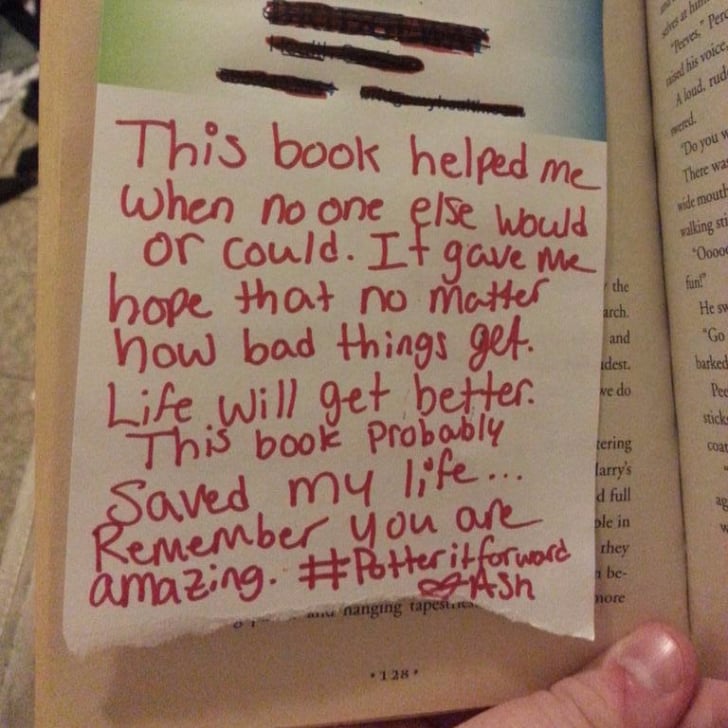 This book helped me
when no one else would
or could. It gave me
hope that no matter
how bad things get.
Life will get better.
This book probably
saved my life...
Remember you are
amazing. #Potteritforward
Ash
the
arch.
and
idest.
we do
tering
Harry's
d full
ple in
they
be-
more
hanging
•128•
"Peeves,"
raised his voice
A loud, rud
wered.
"Do you w
There wa
wide mouth
walking sti
"Oooo
fun!"
He sw
"Go
barked
Pee
stick
coat